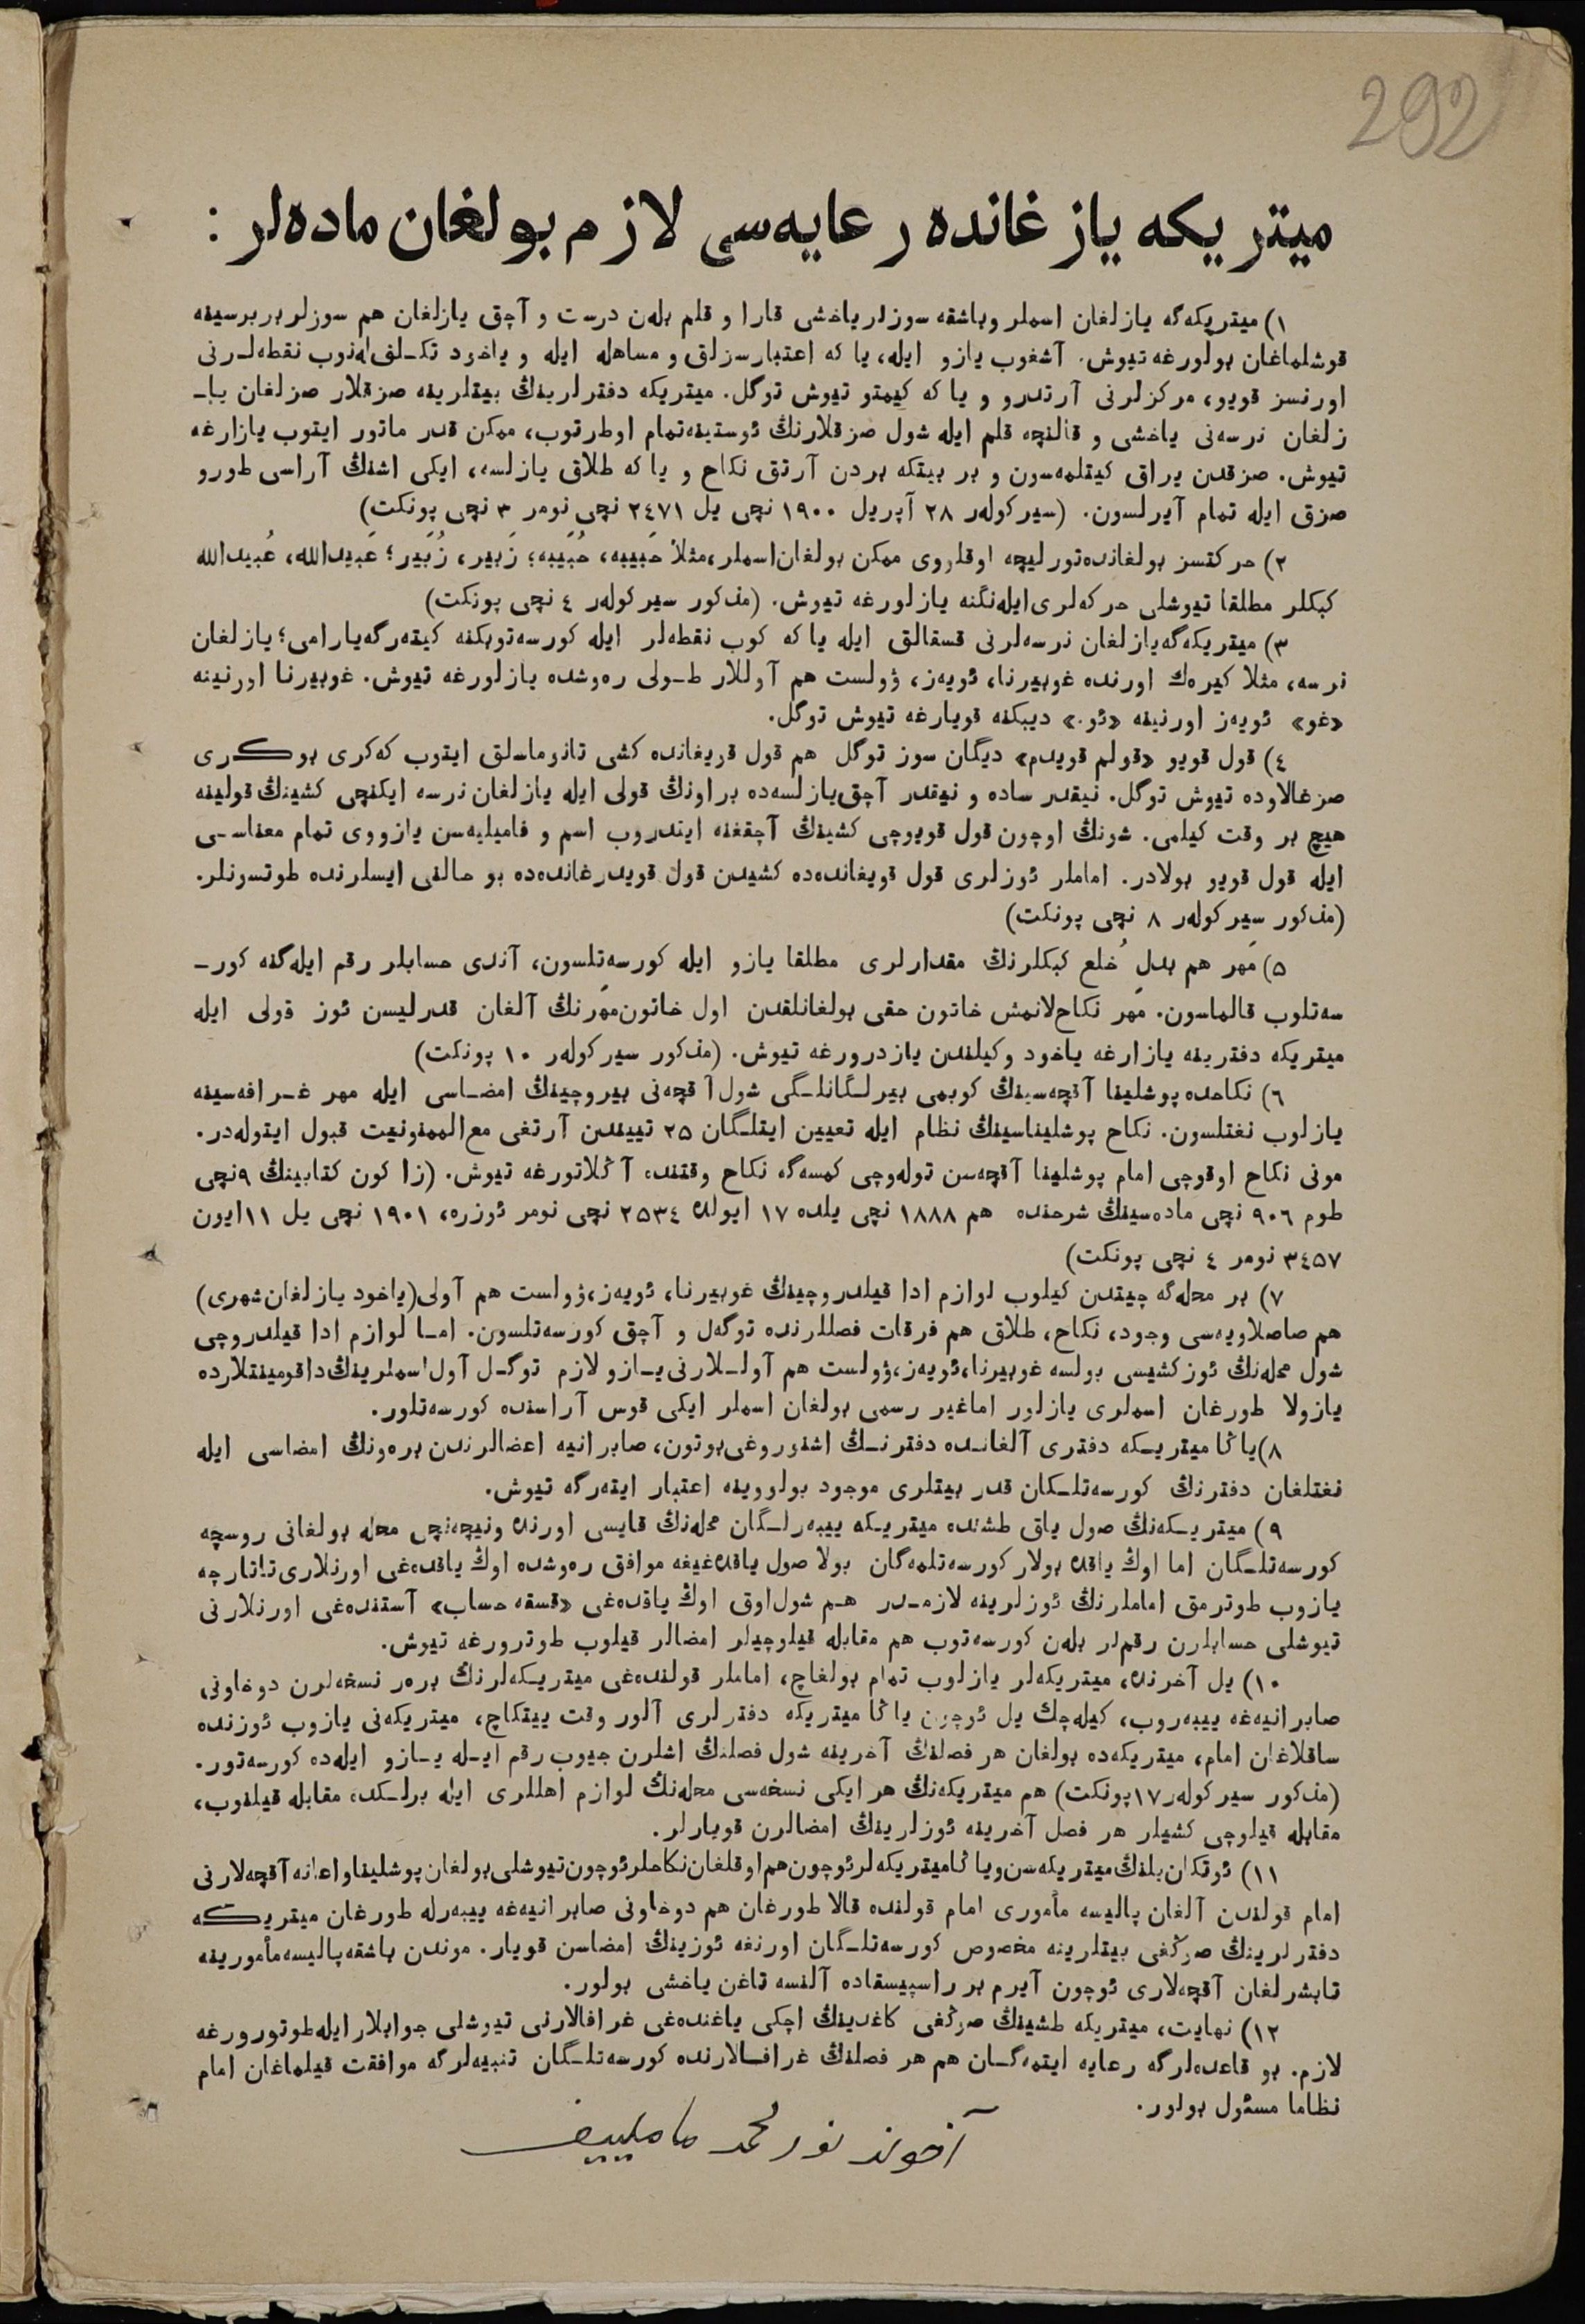 292
ميتريكه يازغانده رعايه‌سى لازم بولغان ماده‌لر :
١) ميتريكه‌گه يازلغان اسملر وباشقه سوزلر ياخشى قارا و قلم بله‌ن درست و آچق يازلغان هم سوزلر بربرسينه
قوشلماغان بولورغه تيوش. آشغوب يازو ايله، يا كه اعتبارسزلق و مساهله ايله و ياخود تكـلف‌له‌نوب نقطه‌لـرنى
اورنسز قويو، مركزلرنى آرتدرو و يا كه كيمتو تيوش توگل. ميتريكه دفترلرينڭ بيتلرينه صزقلار صزلغان يا‍ـ
زلغان نرسه‌نى ياخشى و قالنچه قلم ايله شول صزقلارنڭ ئوستينه‌تمام اوطرتوب، ممكن قدر ماتور ايتوب يازارغه
تيوش. صزقدن يراق كيتلمه‌سون و بر بيتكه بردن آرتق نكاح و يا كه طلاق يازلسه، ايكى اشنڭ آراسى طورو
صزق ايله تمام آيرلسون. (سيركوله‌ر ٢٨ آپريل ١٩٠٠ نچى يل ٢٤٧١ نچى نومر ٣ نچى پونكت)
٢) حركتسز بولغانده‌تورليچه اوقلروى ممكن بولغان‌اسملر،مثلا حَبيبه، حُبَيبه؛ زَبير، زُبَير؛ عَبيدالله، عُبيدالله
كبكلر مطلقا تيوشلى حركه‌لرى‌ايله‌نگنه يازلورغه تيوش. (مذكور سيركوله‌ر ٤ نچى پونكت)
٣) ميتريكه‌گه‌يازلغان نرسه‌لرنى قسقالق ايله يا كه كوب نقطه‌لر ايله كورسه‌توبكنه كيته‌رگه‌يارامى؛ يازلغان
نرسه، مثلا كيره‌ك اورنده غوبيرنا، ئويه‌ز، ۋولست هم آوللار طـولى ره‌وشده يازلورغه تيوش. غوبيرنا اورنينه
«غو» ئويه‌ز اورنينه «ئو.» ديبكنه قويارغه تيوش توگل.
٤) قول قويو «قولم قويدم» ديگان سوز توگل هم قول قويغانده كشى تانوماسلق ايتوب كه‌كرى بوكرى
صزغالاوده تيوش توگل. نيقدر ساده و نيقدر آچق‌يازلسه‌ده براونڭ قولى ايله يازلغان نرسه ايكنچى كشينڭ قولينه
هيچ بر وقت كيلمى. شونڭ اوچون قول قويوچى كشينڭ آچقغنه ايندروب اسم و فاميليه‌سن يازووى تمام معناسـى
ايله قول قويو بولادر. اماملر ئوزلرى قول قويغانده‌ده كشيدن قول قويدرغانده‌ده بو حالنى ايسلرنده طوتسونلر.
(مذكور سيركوله‌ر ٨ نچى پونكت)
٥) مَهر هم بدلِ خُلع كبكلرنڭ مقدارلرى مطلقا يازو ايله كورسه‌تلسون، آندى حسابلر رقم ايله‌گنه كورـ
سه‌تلوب قالماسون. مَهر نكاح‌لانمش خاتون حقى بولغانلقدن اول خاتون‌مَهرنڭ آلغان قدرليسن ئوز قولى ايله
ميتريكه دفترينه يازارغه ياخود وكيلندن يازدرورغه تيوش. (مذكور سيركوله‌ر ١٠ پونكت)
٦) نكاحده پوشلينا آقچه‌سينڭ كوبمى بيرلـگانلـگى شول آقچه‌نى بيروچينڭ امضـاسى ايله مهر غـرافه‌سينه
يازلوب نغتلسون. نكاح پوشليناسينڭ نظام ايله تعيين ايتلـگان ٢٥ تييندن آرتغى مع‌الممنونيت قبول ايتوله‌در.
مونى نكاح اوقوچى امام پوشلينا آقچه‌سن توله‌وچى كمسه‌گه نكاح وقتنده آڭلاتورغه تيوش. (زاكون كتابينڭ ٩نچى
طوم ٩٠٦ نچى ماده‌سينڭ شرحنده هم ١٨٨٨ نچى يلده ١٧ ايولده ٢٥٣٤ نچى نومر ئوزره، ١٩٠١ نچى يل ١١ايون
٣٤٥٧ نومر ٤ نچى پونكت)
٧) بر محله‌گه چيتدن كيلوب لوازم ادا قيلدروچينڭ غوبيرنا، ئويه‌ز،ۋولست هم آولى(ياخود يازلغان‌شهرى)
هم صاصلاويه‌سى وجود، نكاح، طلاق هم فرقات فصللرنده توگه‌ل و آچق كورسه‌تلسون. امـا لوازم ادا قيلدروچى
شول محله‌نڭ ئوزكشيسى بولسه غوبيرنا،ئويه‌ز،ۋولست هم آولـلارنى‌يـازو لازم توگـل آول‌اسملرينڭ‌داقومينتلارده
يازولا طورغان اسملرى يازلور اماغير رسمى بولغان اسملر ايكى قوس آراسنده كورسه‌تلور.
٨)ياڭا ميتريـكه دفترى آلغانـده دفترنـڭ اشنوروغى‌بوتون، صابرانيه اعضالرندن بره‌ونڭ امضاسى ايله
نغتلغان دفترنڭ كورسه‌تلـكان قدر بيتلرى موجود بولووينه اعتبار ايته‌رگه تيوش.
٩) ميتريـكه‌نڭ صول ياق طشنده ميتريـكه ييبه‌رلـگان محله‌نڭ قايسى اورنده ونيچه‌نچى محله بولغانى روسچه
كورسه‌تلـگان اما اوڭ ياقده بولار كورسه‌تلمه‌گان بولا صول ياقده‌غيغه موافق ره‌وشده اوڭ ياقده‌غى اورنلارى‌تاتارچه
يازوب طوترمق اماملرنڭ ئوزلرينه لازمـدر هـم شول‌اوق اوڭ ياقده‌غى «قسقه حساب» آستنده‌غى اورنلارنى
تيوشلى حسابلرن رقم‌لر بله‌ن كورسه‌توب هم مقابله قيلوچيلر امضالر قيلوب طوترورغه تيوش.
١٠) يل آخرنده، ميتريكه‌لر يازلوب تمام بولغاچ، اماملر قولنده‌غى ميتريـكه‌لرنڭ بره‌ر نسخه‌لرن دوخاونى
صابرانيه‌غه ييبه‌روب، كيله‌چك يل ئوچون ياڭا ميتريكه دفترلرى آلور وقت ييتكاچ، ميتريكه‌نى يازوب ئوزنده
ساقلاغان امام، ميتريكه‌ده بولغان هر فصلنڭ آخرينه شول فصلنڭ اشلرن جيوب رقم ايـله يـازو ايله‌ده كورسه‌تور.
(مذكور سيركوله‌ر١٧پونكت) هم ميتريكه‌نڭ هر ايكى نسخه‌سى محله‌نڭ لوازم اهللرى ايله برلـكده مقابله قيلنوب،
مقابله قيلوچى كشيلر هر فصل آخرينه ئوزلرينڭ امضالرن قويارلر.
١١) ئوتكان‌يلنڭ‌ميتريكه‌سن‌وياڭاميتريكه‌لرئوچون‌هم‌اوقلغان‌نكاحلرئوچون‌تيوشلى‌بولغان‌پوشليناواعانه‌آقچه‌لارنى
امام قولندن آلغان پاليسه مأمورى امام قولنده قالا طورغان هم دوخاونى صابرانيه‌غه ييبه‌رله طورغان ميتريكه
دفترلرينڭ صوڭغى بيتلرينه مخصوص كورسه‌تلـگان اورنغه ئوزينڭ امضاسن قويار. موندن باشقه‌پاليسه‌مأمورينه
تابشرلغان آقچه‌لارى ئوچون آيرم بر راسپيسقاده آلنسه تاغن ياخشى بولور.
١٢) نهايت، ميتريكه طشينڭ صوڭغى كاغدينڭ اچكى ياغنده‌غى غرافالارنى تيوشلى جوابلارايله‌طوتورورغه
لازم. بو قاعده‌لرگه رعايه ايتمه‌گـان هم هر فصلنڭ غرافـالارنده كورسه‌تلـگان تنبيه‌لرگه موافقت قيلماغان امام
نظاما مسئول بولور.
آخوند نور محمد مامليف